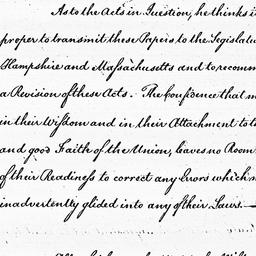 As to the Acts in Question, he thinks i
proper to transmit these Papers to the Legislatu
Hampshire and Massachusetts and to recomm
a Revision of these Acts. The Confidence that m
in their Wisdom and in their Attachment to t
and good Faith of the Union, leaves no Room
of their Readiness to correct any Errors which m
inadvertently glided into any of their Laws.—